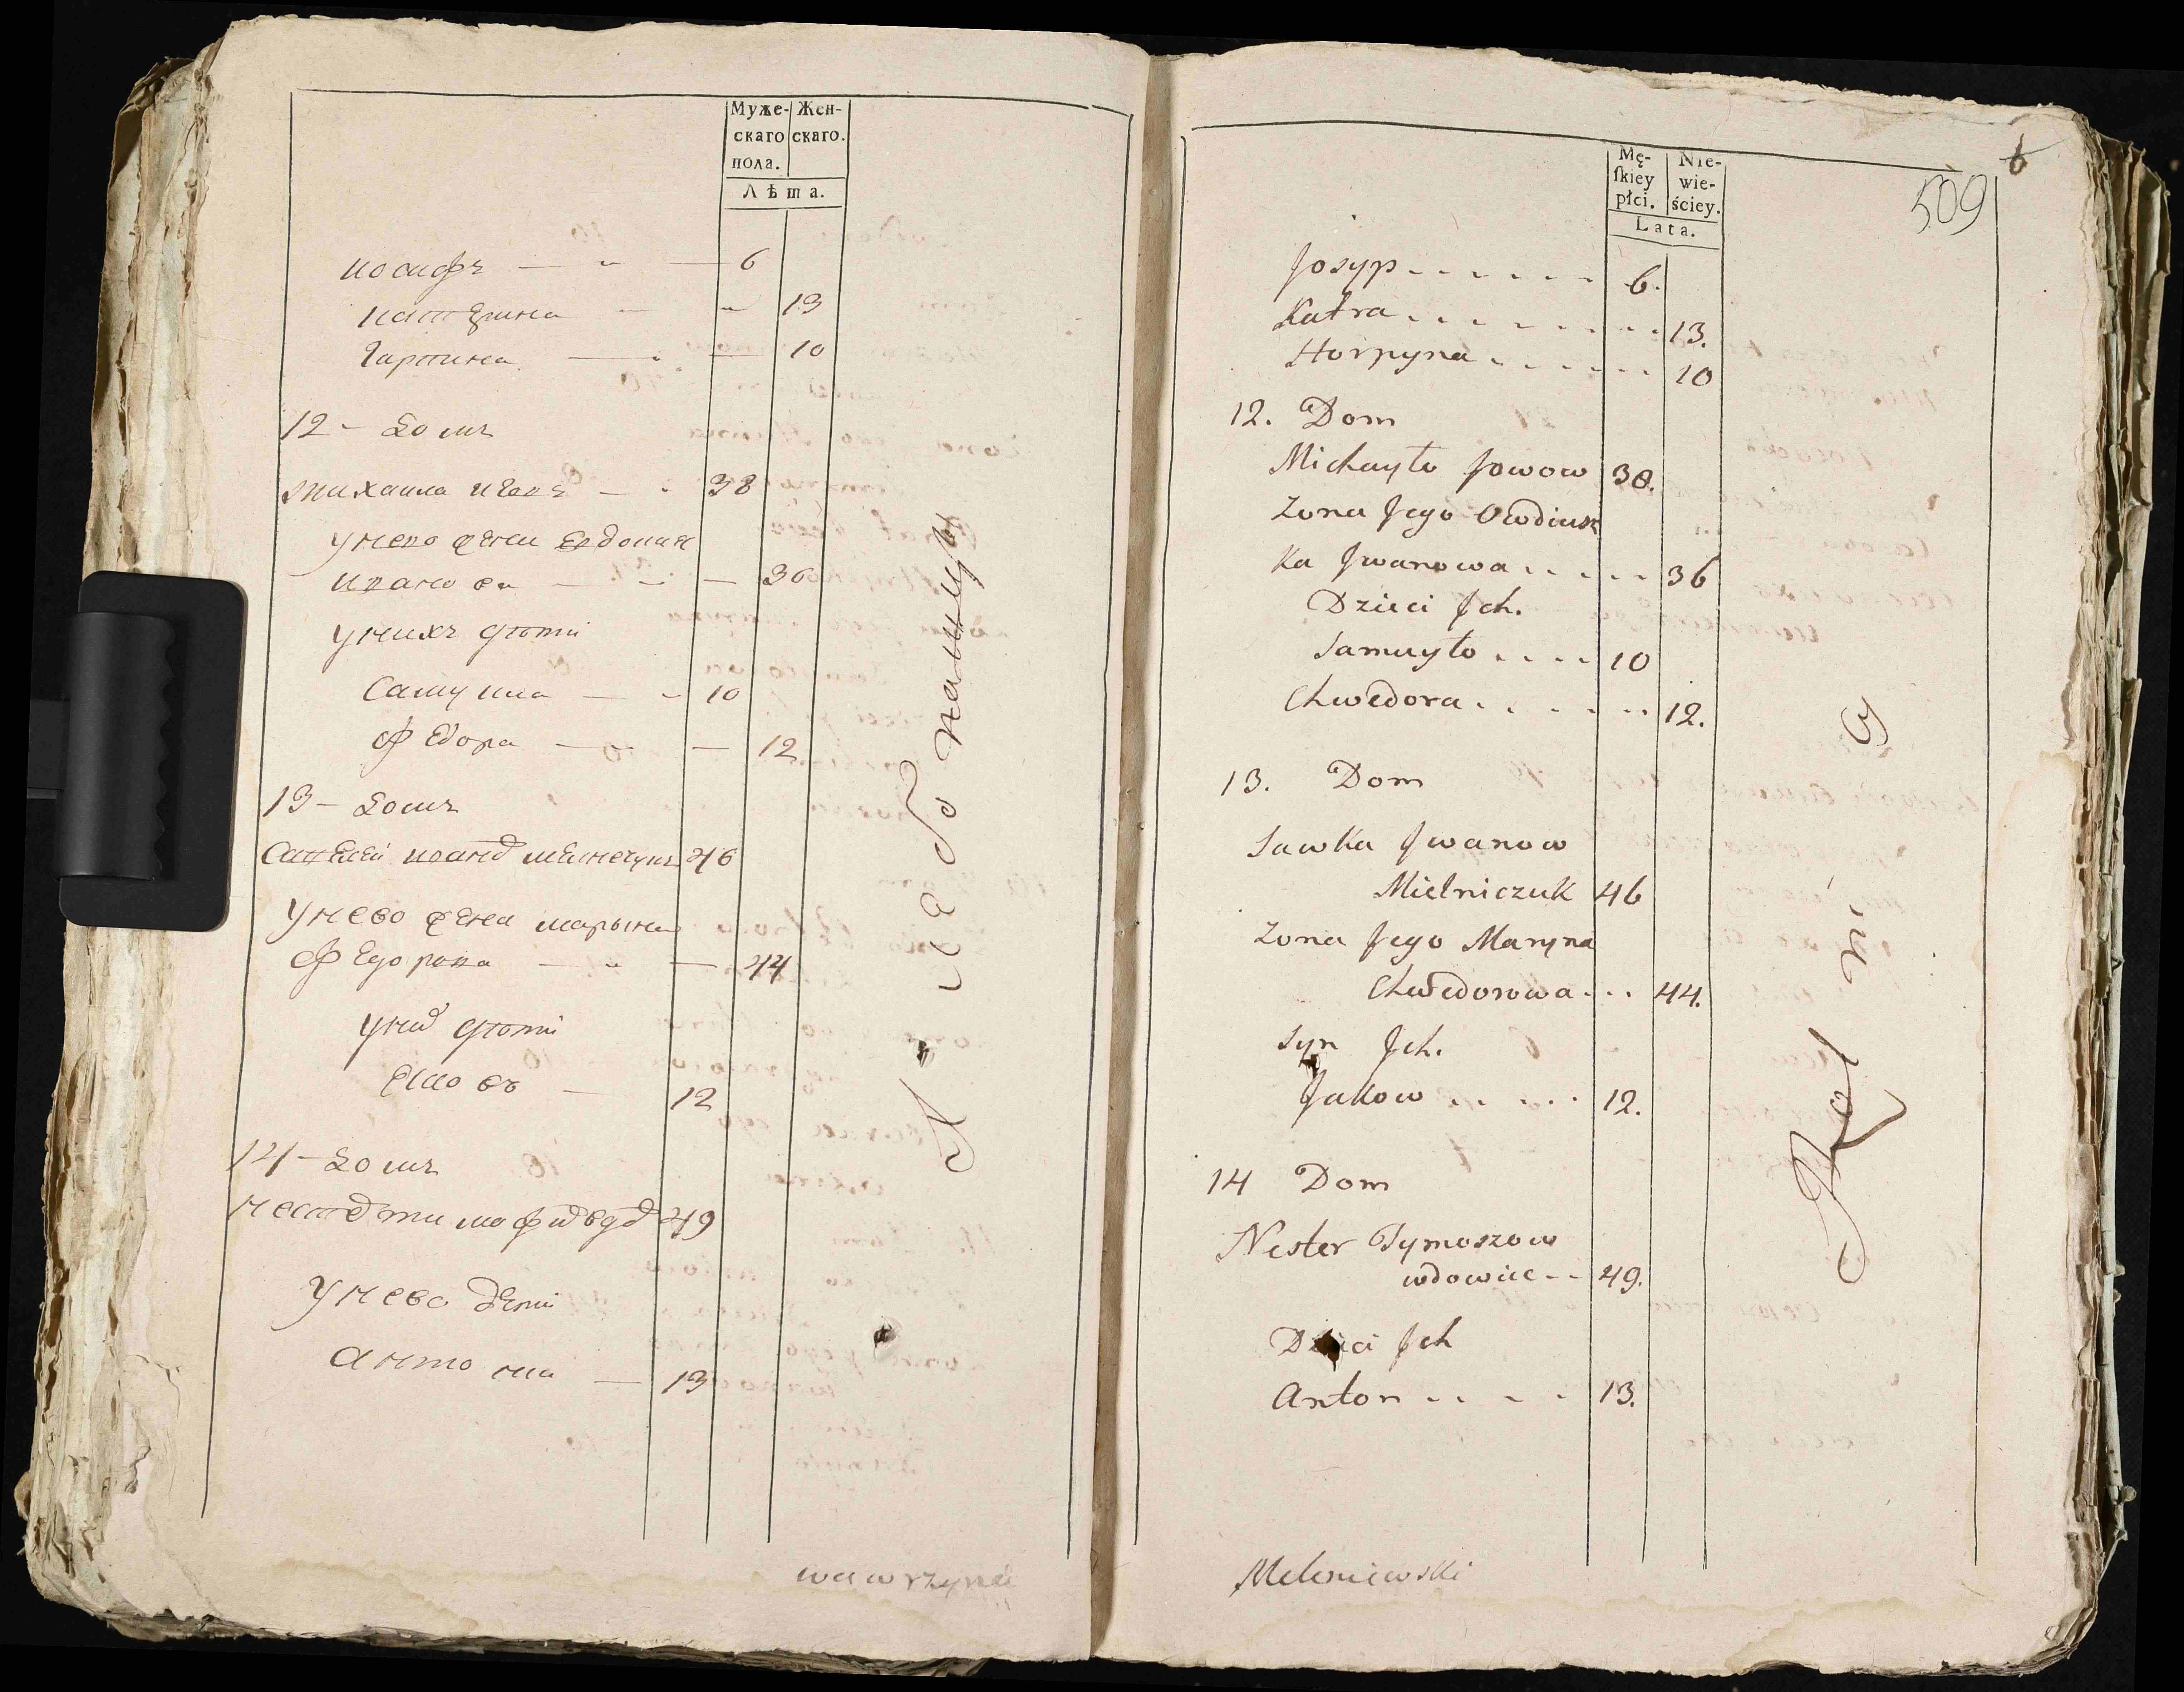 Муже- Жен-
скаго скаго.
пола.
Лѣта.
иосифъ 6
катерина 13
Гарпина 10
12 - Домъ
михаила иевъ 38
унево жена евдокия
иванова 36
унихъ дѣти
самуила 10
федора 12
13 - Домъ
савелей иванов мелничукъ 46
унево жена марына
федорова 44
уних дѣти
яковъ 12
14 - Домъ
нестер тимофиев вдов 49
унево дети
антона 13
wawrzynie
6
509
Mę- Nie-
ſkiey wie-
płci. ściey.
Lata.
Josyp 6.
Katra 13.
Horpyna 10
12. Dom
Michayło Jowow 38.
Zona Jego Owdiusz
ka Jwanowa 36
Dzieci Jch.
Samuyło 10
Chwedora 12.
13. Dom
Sawka Jwanow
Mielniczuk 46
Zona Jego Maryna
Chwedorowa 44.
Syn Jch.
Jakow 12.
14 Dom
Nester Tymoszow
wdowiec 49.
Dzieci Jch
Anton 13.
Meleniewski